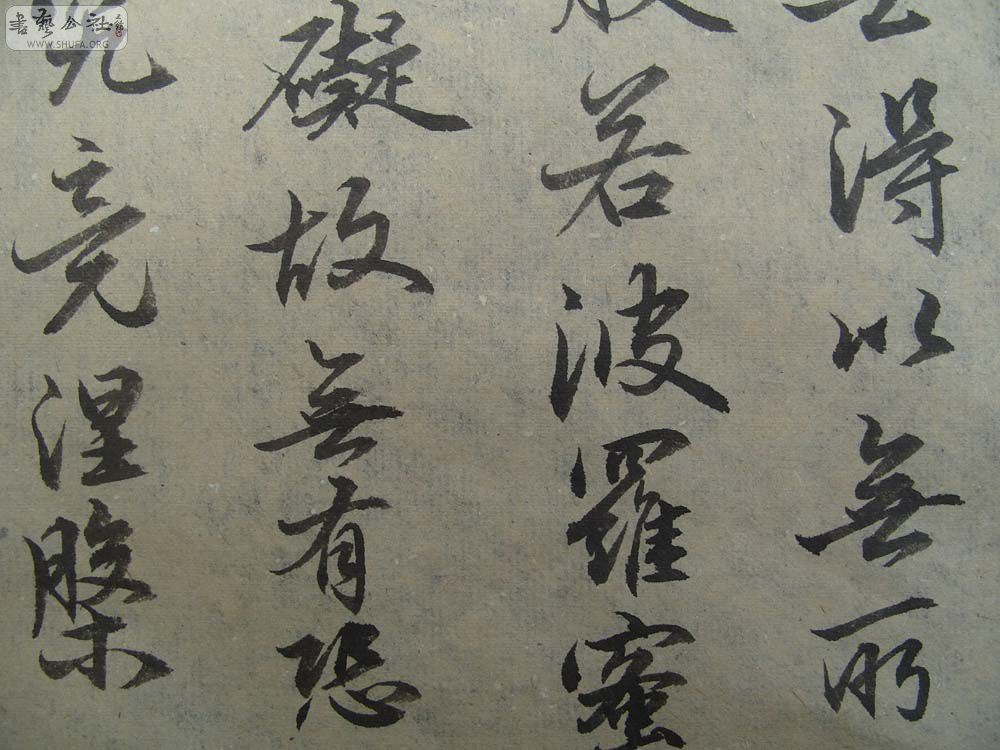 得以無所
若波羅蜜
礙故無有恐
竟涅槃
書藝公社
WWW.SHUFA.ORG